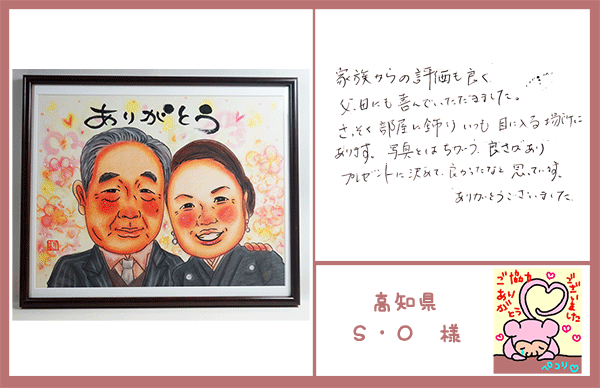 ありがとう
家族からの評価も良く
父母にも喜んでいただきました。
さっそく部屋に飾り いつも 目に入る場所に
あります。写真とはちがう 良さがあり
プレゼントに決めて 良かったなと 思っています。
ありがとうございました
高知県
S・O 様
ご協力
ありがとう
ございました
ペコリ